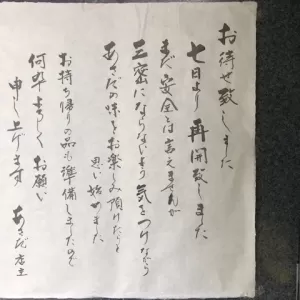 お待せ致しました
七日より再開致しました
まだ安全とは言えませんが
三密にならないよう気をつけながら
あさだの味をお楽しみ頂けたらと
思い始めました
お持ち帰りの品も準備しましたので
何卒よろしくお願い
申し上げます
あさだ店主